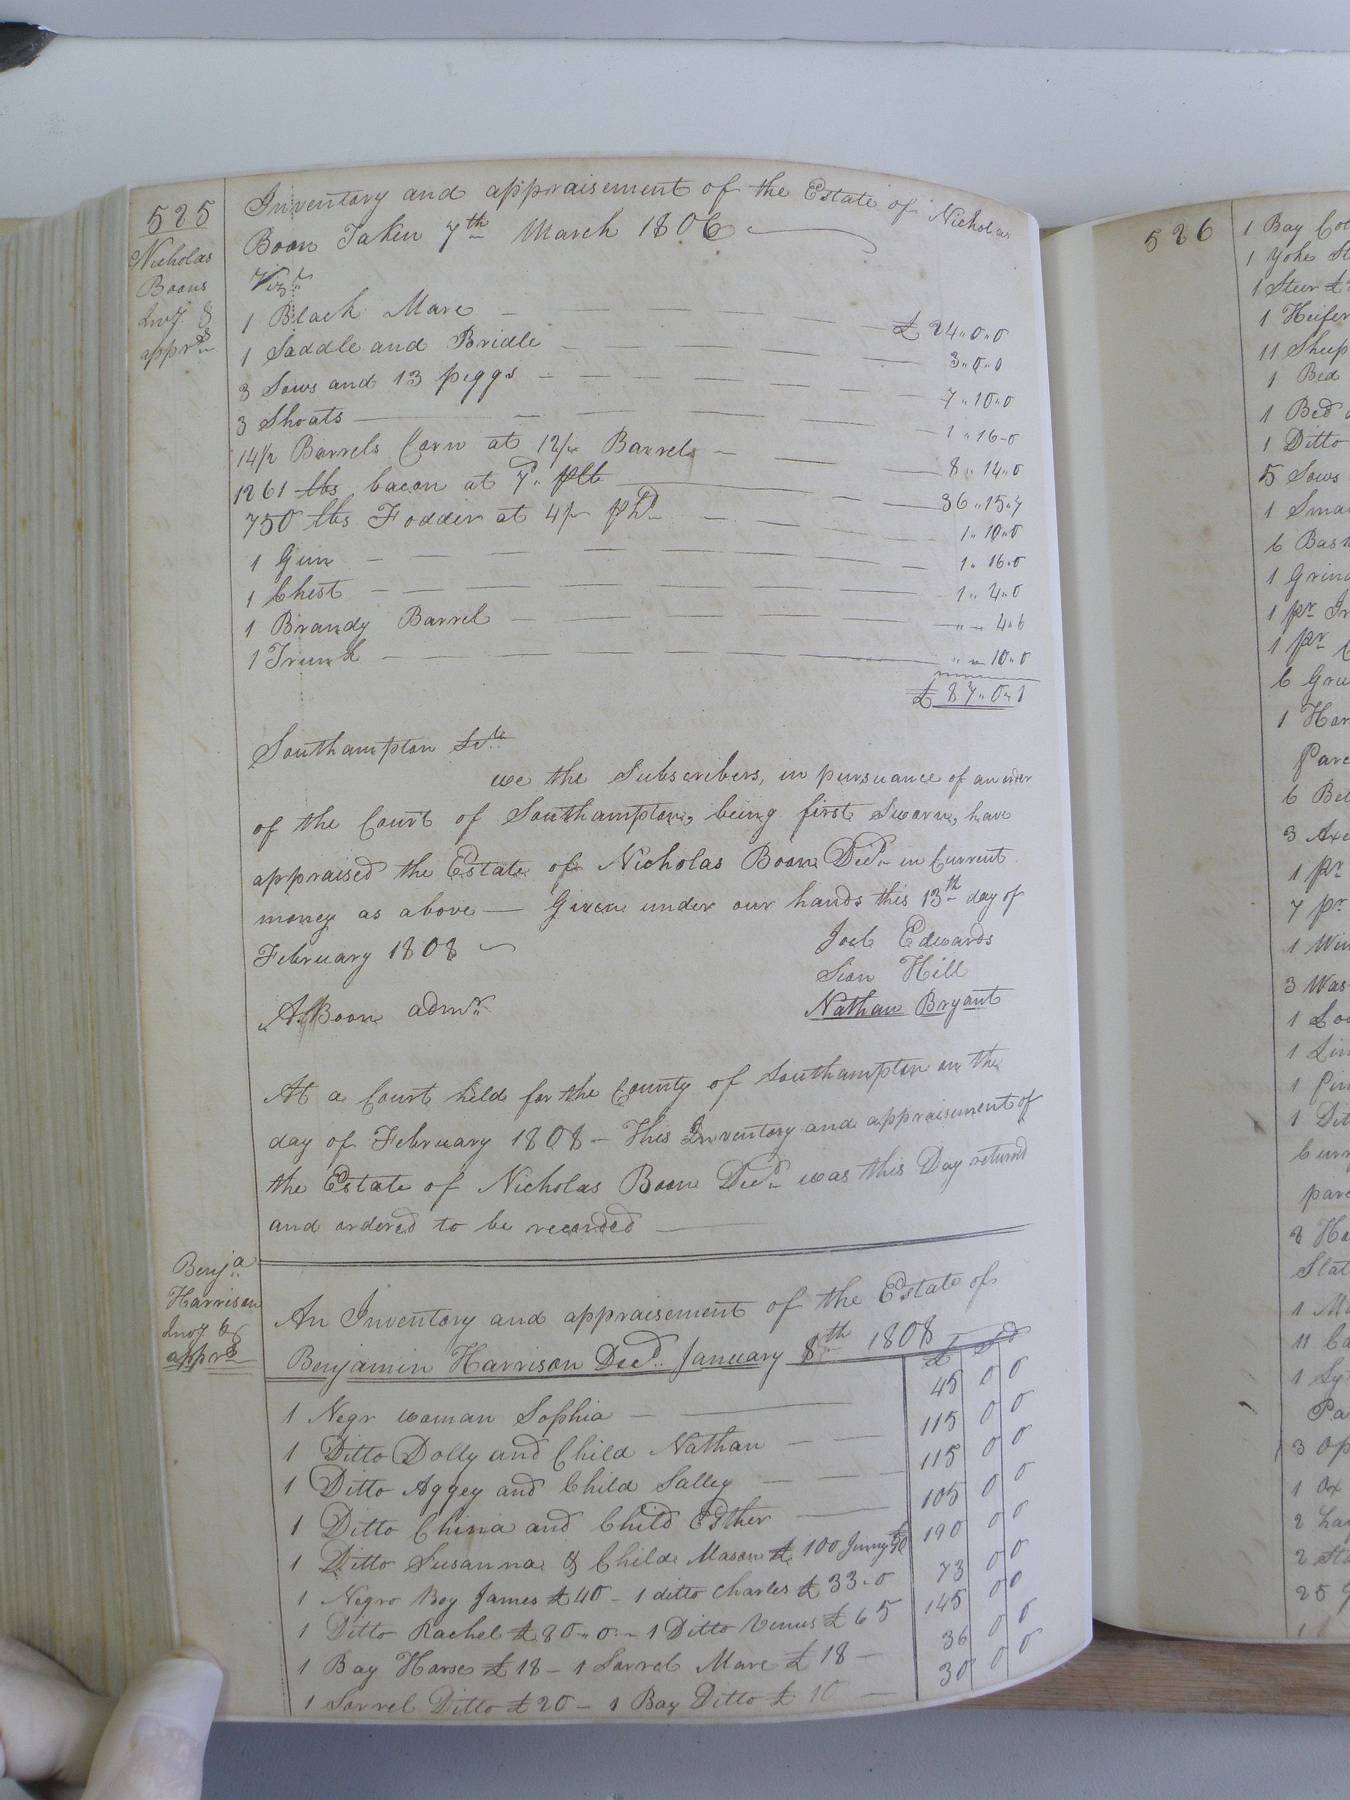 525
Nicholas
Boons
Invy &
apprs
Inventory and appraisement of the Estate of Nicholas
Boon Taken 7th March 1806
Vizt
1 Black Mare £ 24..0..0
1 Saddle and Bridle 3..0..0
3 Sows and 13 piggs 7..10..0
3 Shoats 1..16..0
14½ Barrels Corn at 12/ Barrels 8..14..0
1261 lbs bacon at 7d plb 36..15..7
750 lbs Fodder at 4/ pHd 1..10..0
1 Gun 1..16..0
1 Chest 1..4..0
1 Brandy Barrel 4..6
1 Trunk 10..0
£ 87..0..1
Southampton Sct
we the Subscribers, in pursuance of an order
of the Court of Southampton, being first Sworn, have
appraised the Estate of Nicholas Boon Decd in Current
money as above — Given under our hands this 13th day of
February 1808
Joel Edwards
Sion Hill
A. Boon admr Nathan Bryant
At a Court held for the County of Southampton on the
day of February 1808 — This Inventory and appraisement of
the Estate of Nicholas Boon Decd was this Day returned
and ordered to be recorded
Benja
Harrison
Invy &
apprs
An Inventory and appraisement of the Estate of
Benjamin Harrison Decd January 8th 1808 £ S d
1 Negr woman Sophia 45 0 0
1 Ditto Dolly and Child Nathan 115 0 0
1 Ditto Aggey and Child Salley 115 0 0
1 Ditto China and Child Esther 105 0 0
1 Ditto Susanna & Child Mason £ 100 Jinny £90 190 0 0
1 Negro Boy James £40 – 1 ditto Charles £ 33..0 73 0 0
1 Ditto Rachel £80..0.. 1 Ditto Venus £65 145 0 0
1 Bay Horse £18 – 1 Sorrel Mare £18 — 36 0 0
1 Sorrel Ditto £20 – 1 Bay Ditto £10 — 30 0 0
526
1 Bay
1 Yoke
1 Steer
1 Heifer
11 Sheep
1 Bed
1 Bed
1 Ditto
5 Sows
1
6
1
1 pr
1 pr
6
1
6
3 Axe
1 pr
7 pr
1
3
1
1
1
1
8
1
11
1
3
1 Ox
2
2
25